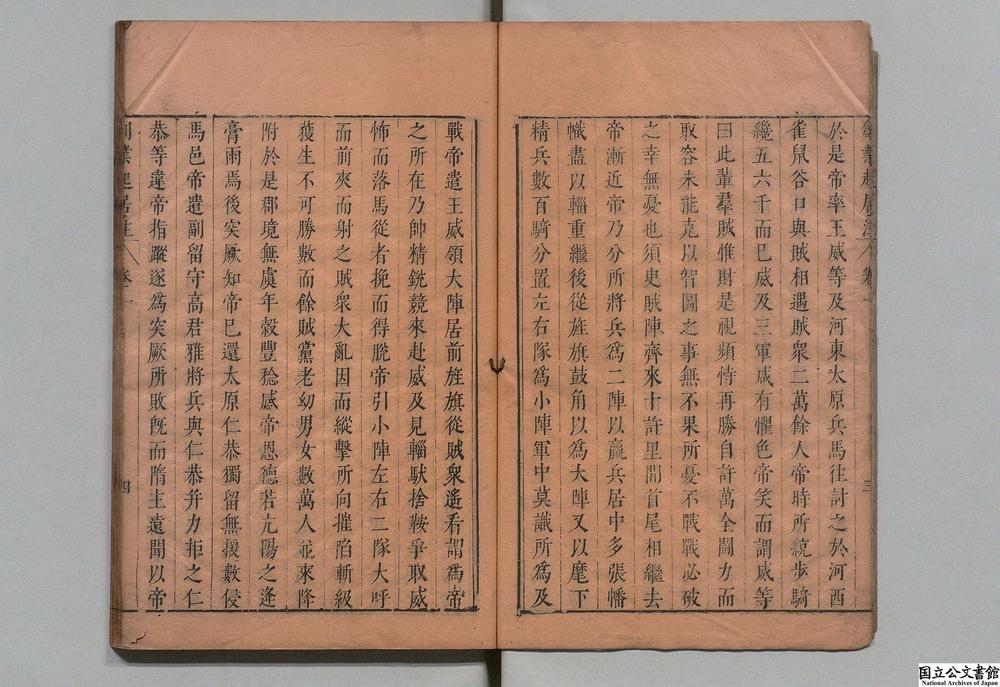 於是帝率王威等及河東太原兵馬往討之於河西
雀鼠谷口與賊相遇賊衆二萬餘人帝時所統步騎
纔五六千而已威及三軍咸有懼色帝笑而謂威等
曰此輩羣賊惟財是視頻恃再勝自許萬全鬬力而
取容未能克以智圖之事無不果所憂不戰戰必破
之幸無憂也須臾賊陣齊來十許里間首尾相繼去
帝漸近帝乃分所將兵爲二陣以羸兵居中多張幡
幟盡以輜重繼後從旌旗鼓角以爲大陣又以麾下
精兵數百騎分置左右隊爲小陣軍中莫識所爲及
戰帝遣王威領大陣居前旌旗從賊衆遙看謂爲帝
之所在乃帥精銳競來赴威及見輜馱捨鞍爭取威
怖而落馬從者挽而得脫帝引小陣左右二隊大呼
而前夾而射之賊衆大亂因而縱擊所向摧陷斬級
獲生不可勝數而餘賊黨老幼男女數萬人並來降
附於是郡境無虞年穀豐稔感帝恩德若亢陽之逢
膏雨焉後突厥知帝已還太原仁恭獨留無援數侵
馬邑帝遣副留守高君雅將兵與仁恭并力拒之仁
恭等違帝指蹤遂爲突厥所敗旣而隋主遠聞以帝
國立公文書館
National Archives of Japan